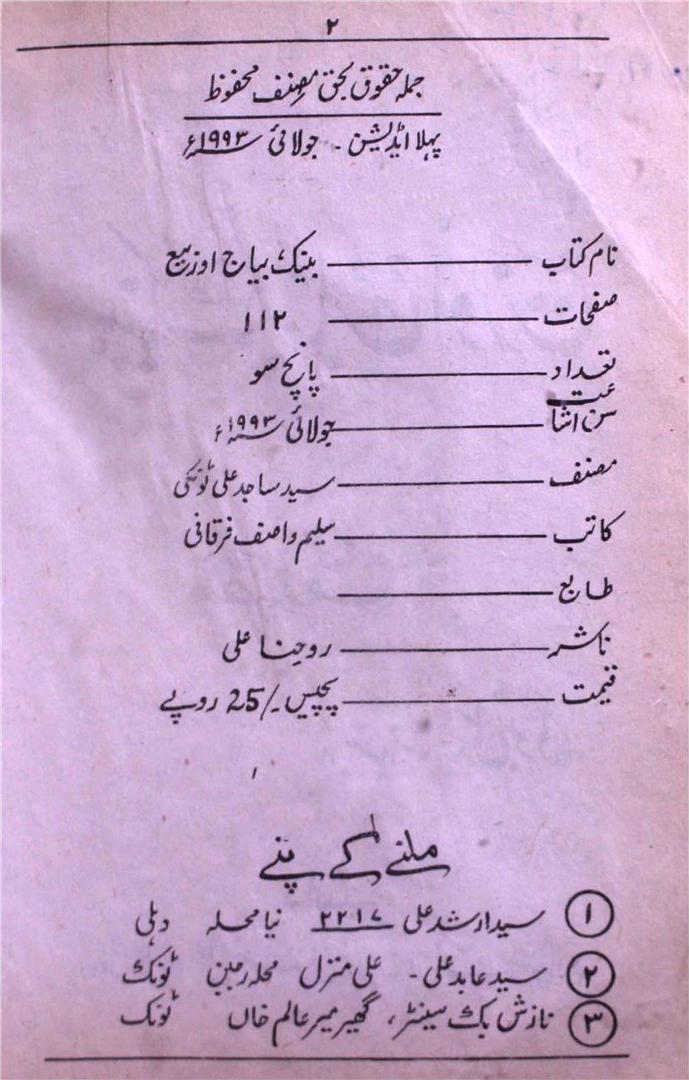 ۲
جملہ حقوق بحق مصنف محفوظ
پہلا ایڈیشن - جولائی ۱۹۹۳ء
نام کتاب ــــــ بینک بیاج اور بیع
صفحات ــــــ ۱۱۲
تعداد ــــــ پانچ سو
سن اشاعت ــــــ جولائی ۱۹۹۳ء
مصنف ــــــ سید ساجد علی ٹونکی
کاتب ــــــ سلیم واصف فرقانی
طابع ــــــ
ناشر ــــــ روحینا علی
قیمت ــــــ پچیس -/25 روپے
ملنے کے پتے
۱ سید ارشد علی ۲۲۱۷ نیا محلہ دہلی
۲ سید عابد علی - علی منزل محلہ ٹونک
۳ نازش بک سینٹر، گھیر میر عالم خاں ٹونک